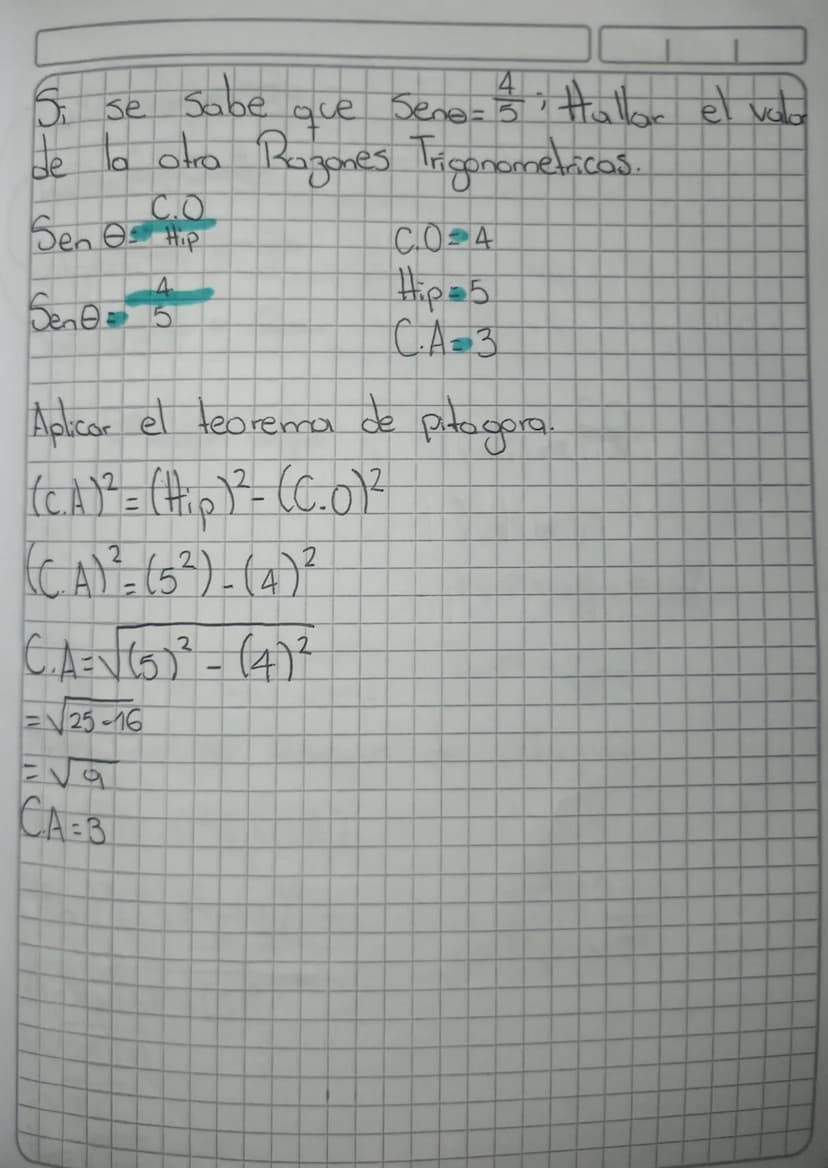 Si se sabe que Senθ = 4/5; Hallar el valor
de la otra Razones Trigonometricas.
Sen θ = C.O/Hip
C.O = 4
Hip = 5
Sen θ = 4/5
C.A = 3
Aplicar el teorema de pitagora.
(C.A)² = (Hip)² - (C.O)²
(C.A)² = (5²) - (4)²
C.A = √(5)² - (4)²
= √25-16
= √9
CA = 3